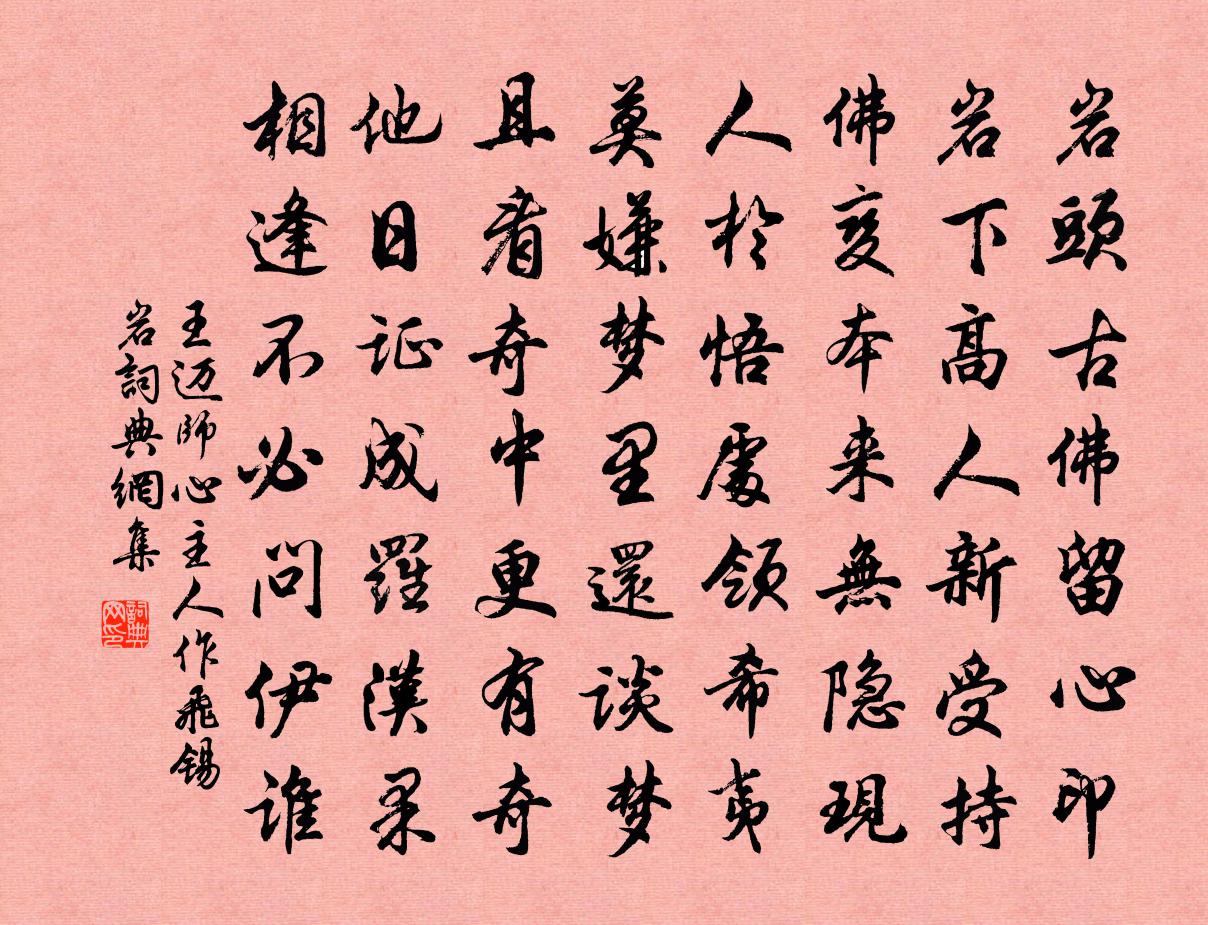 岩頭古佛留心印
岩下高人新受持
佛変本来無隐現
人於悟處领希夷
莫嫌梦里還谈梦
且看奇中更有奇
他日证成羅漢果
相逢不必问伊谁
王迈師心主人作飛錫
岩詞典網集
詞典网印